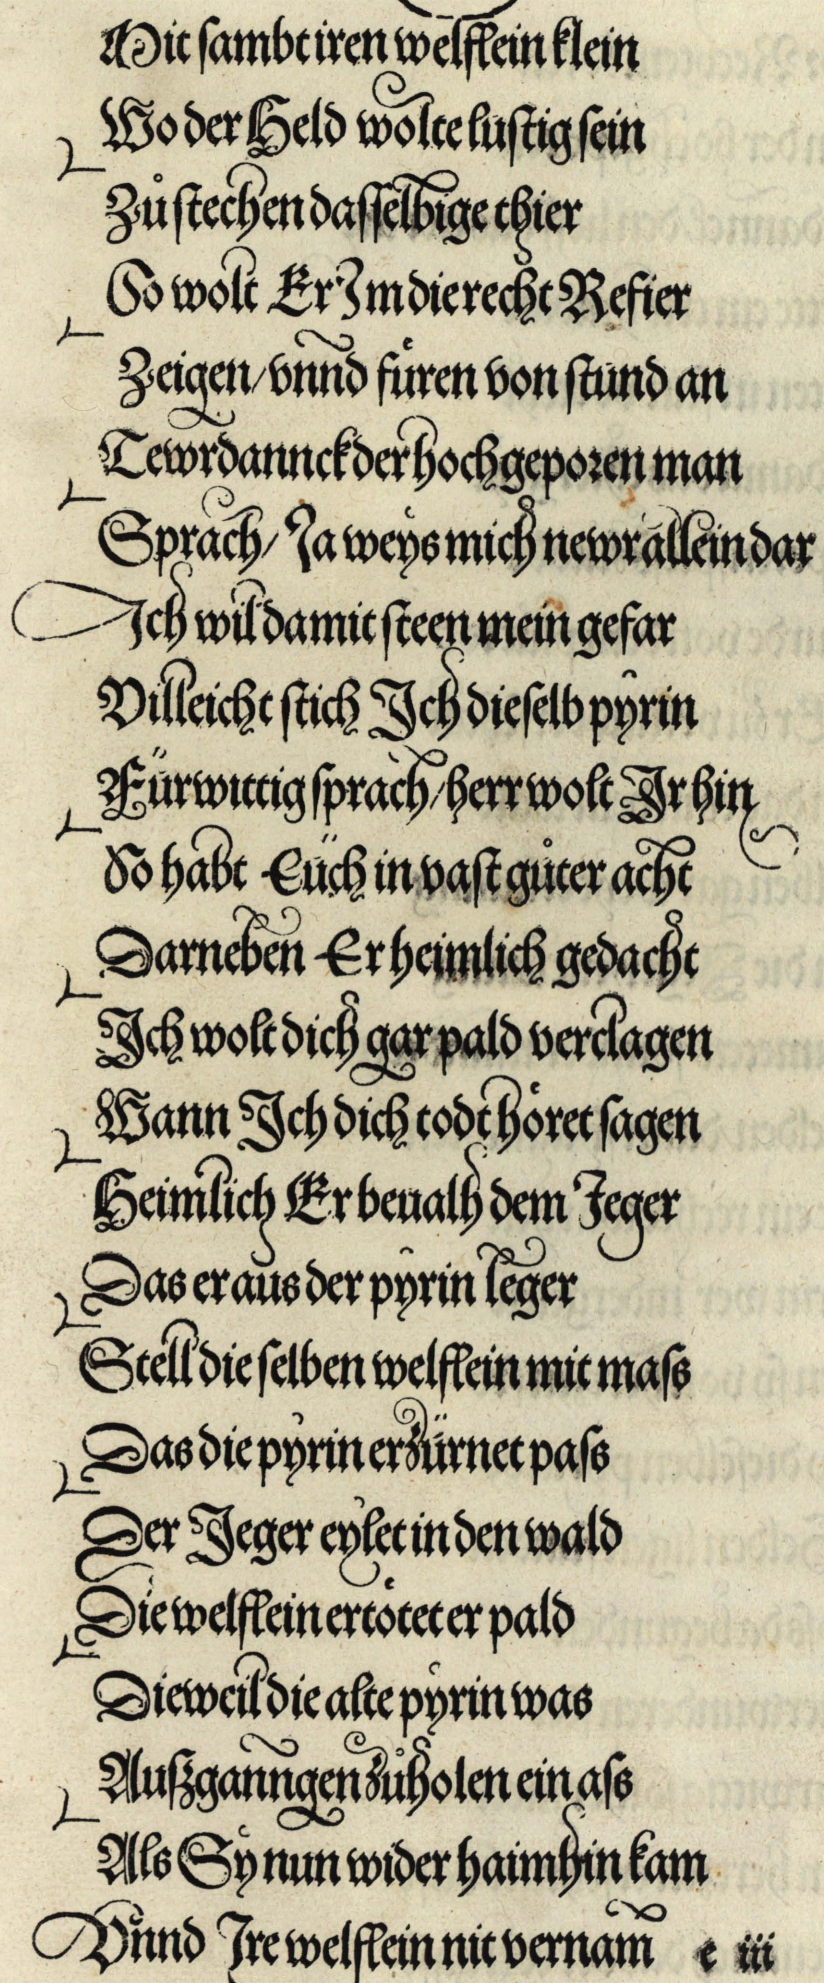 Mit sambt iren welfflein klein
Wo der Held wolte lustig sein
Zů stechen dasselbige thier
So wolt Er Im die recht Refier
Zeigen/ vnnd fůren von stund an
Tewrdannck der hochgeporen man
Sprach/ Ja weys mich newr allein dar
Ich wil damit steen mein gefar
Villeicht stich Ich dieselb pyrin
Fürwittig sprach/ herr wolt Ir hin
So habt Eüch in vast gůter acht
Darneben Er heimlich gedacht
Ich wolt dich gar pald verclagen
Wann Ich dich todt höret sagen
Heimlich Er beualh dem Jeger
Das er aus der pyrin leger
Stell die selben welfflein mit mass
Das die pyrin erzürnet pass
Der Jeger eylet in den wald
Die welfflein ertötet er pald
Dieweil die alte pyrin was
Außganngen zů holen ein ass
Als Sy nun wider haimhin kam
Vnnd Ire welfflein nit vernam e iii